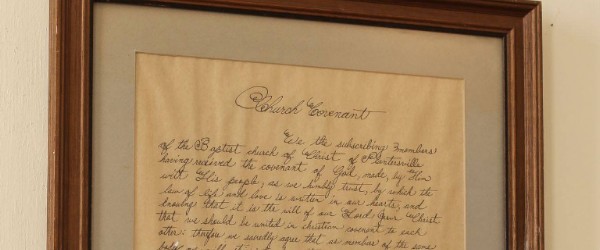 Church Covenant
We the subscribing members
of the Baptist church of Christ of Plantersville
having received the covenant of God, made, by Him
with His people, as we humbly trust, by which the
law of life and love is written in our hearts, and
knowing that it is the will of our Lord Jesus Christ
that we should be united in christian covenant to each
other: therefore we sacredly agree that as members of the same